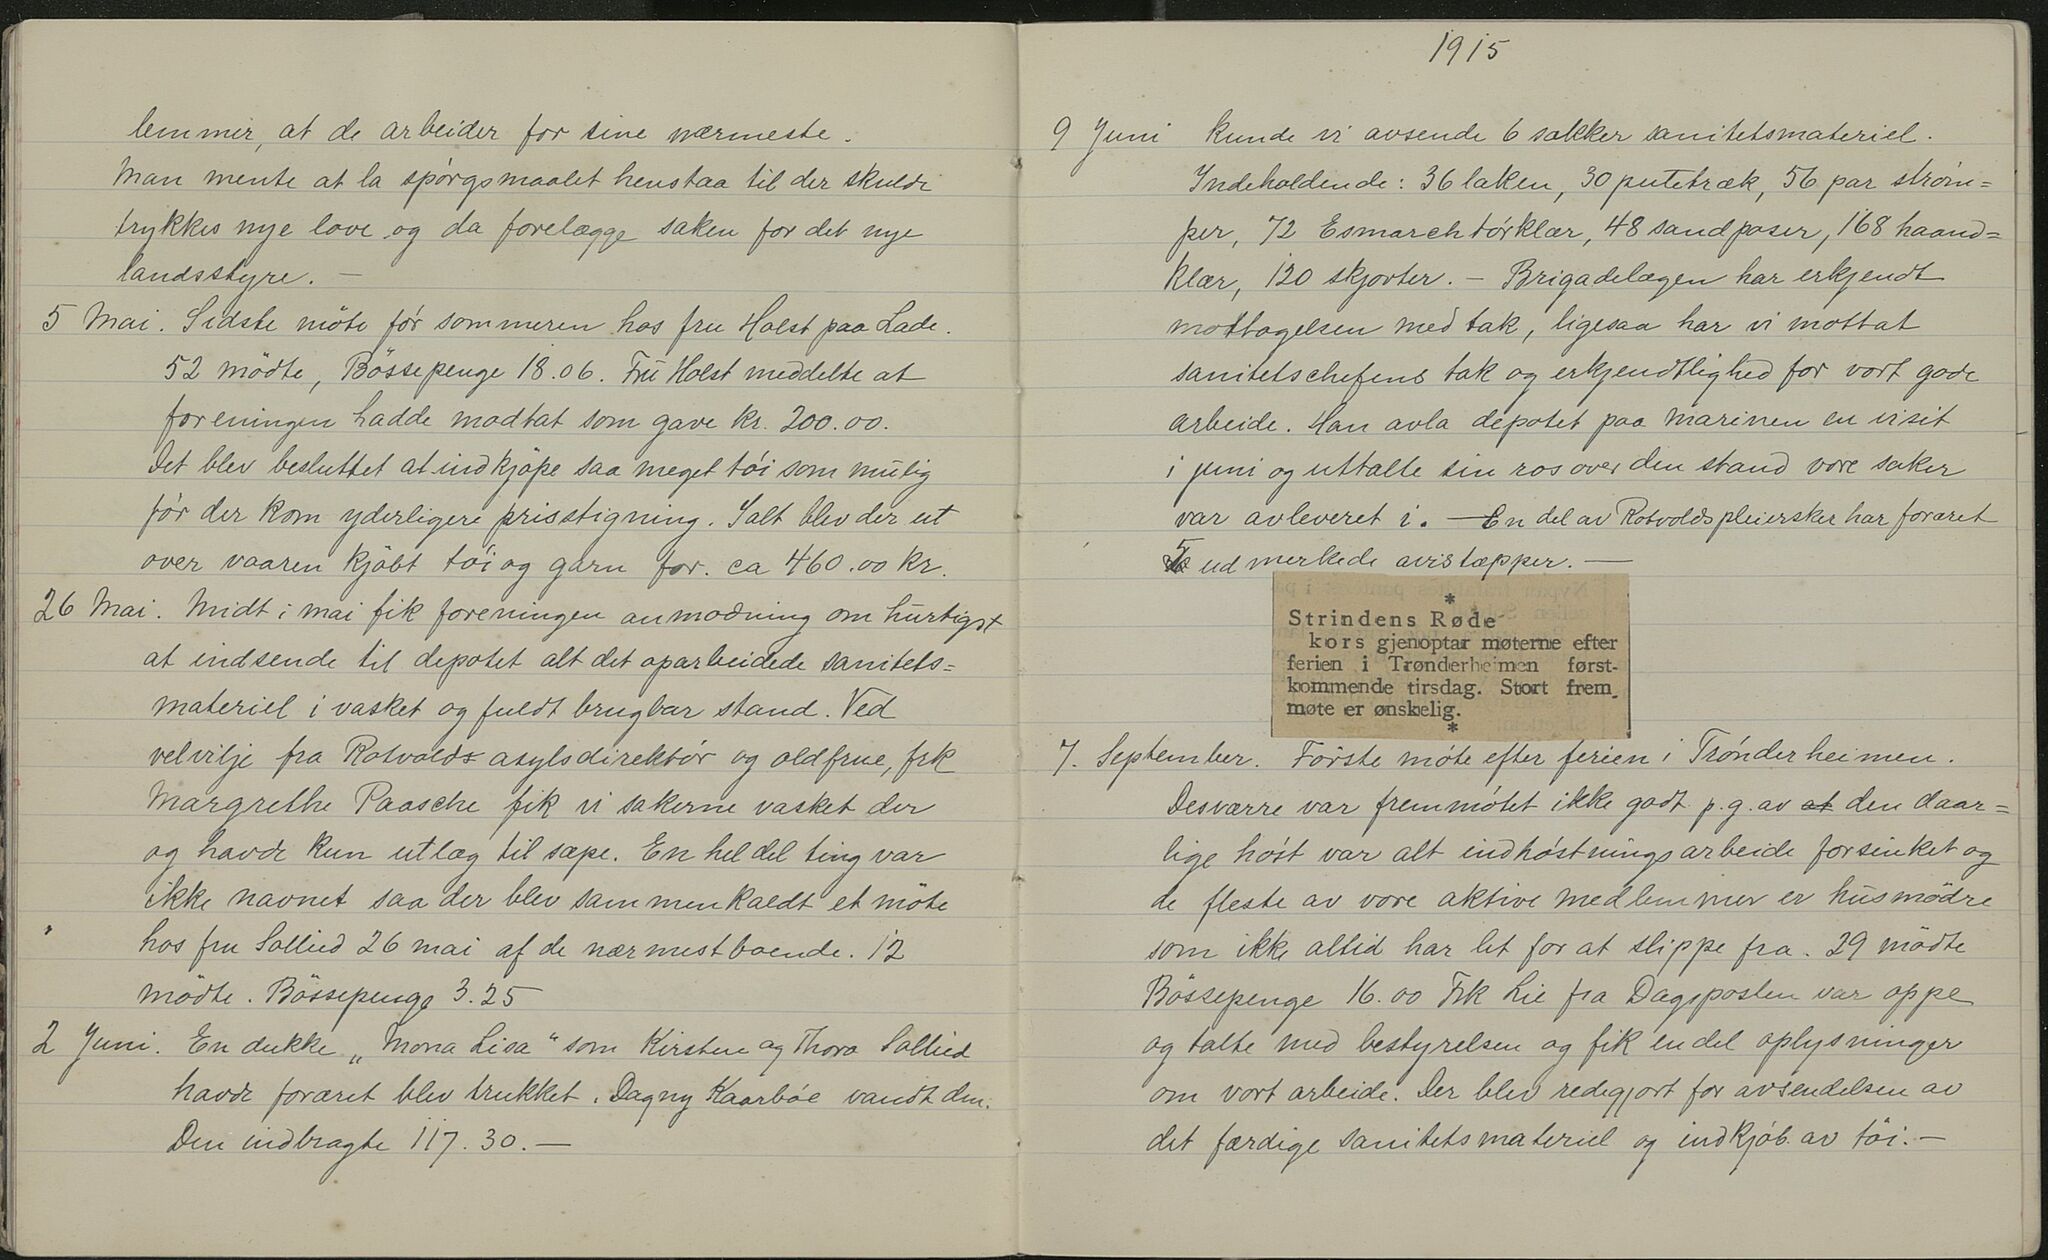 lemmer, at de arbeider for sine nærmeste.
Man mente at la spørgsmaalet henstaa til der skulde
trykkes nye love og da forelægge saken for det nye
landsstyre. —
5 Mai. Sidste möte før sommeren hos fru Holst paa Lade.
52 mödte, Bössepenge 18.06. Fru Holst meddelte at
foreningen hadde modtat som gave kr. 200.00.
Det blev besluttet at indkjøpe saa meget tøi som mulig
før der kom yderligere prisstigning. I alt blev der ut
over vaaren kjøbt tøi og garn for. ca 460.00 kr.
26 Mai. Midt i mai fik foreningen anmodning om hurtigst
at indsende til depotet alt det oparbeidede sanitets=
materiel i vasket og fuldt brugbar stand. Ved
velvilje fra Rotvolds asylsdirektør og oldfrue, frk
Margrethe Paasche fik vi sakerne vasket der
og havde kun utlæg til sæpe. En hel del ting var
ikke navnet saa der blev sammenkaldt et möte
hos fru Sollied 26 mai af de nærmestboende. 12
mödte. Bössepenge 3.25
2 Juni. En dukke „Mona Lisa" som Kirsten og Thora Sollied
havde foræret blev trukket. Dagny Kaarbøe vandt den.
Den indbragte 117.30. —
1915
9 Juni kunde vi avsende 6 sækker sanitetsmateriel.
Indeholdende: 36 laken, 30 putetræk, 56 par strøm=
per, 72 Esmarchtørklær, 48 sandposer, 168 haand=
klær, 120 skjorter. — Brigadelægen har erkjendt
mottagelsen med tak, ligesaa har vi mottat
sanitetschefens tak og erkjendtlighed for vort gode
arbeide. Han avla depotet paa Marinen en visit
i juni og uttalte sin ros over den stand vore saker
var avleveret i. — En del av Rotvoldspleiersker har foræret
5 udmerkede avistæpper. —
*
Strindens Røde
kors gjenoptar møterne efter
ferien i Trønderheimen først-
kommende tirsdag. Stort frem
møte er ønskelig.
*
7. September. Første møte efter ferien i Trønderheimen.
Desværre var fremmøtet ikke godt p.g.av at den daar=
lige høst var alt indhøstningsarbeide forsinket og
de fleste av vore aktive medlemmer er husmødre
som ikke altid har let for at slippe fra. 29 mödte
Bössepenge 16.00 Frk Lie fra Dagsposten var oppe
og talte med bestyrelsen og fik en del oplysninger
om vort arbeide. Der blev redegjort for avsendelsen av
det færdige sanitetsmateriel og indkjøb av tøi. —